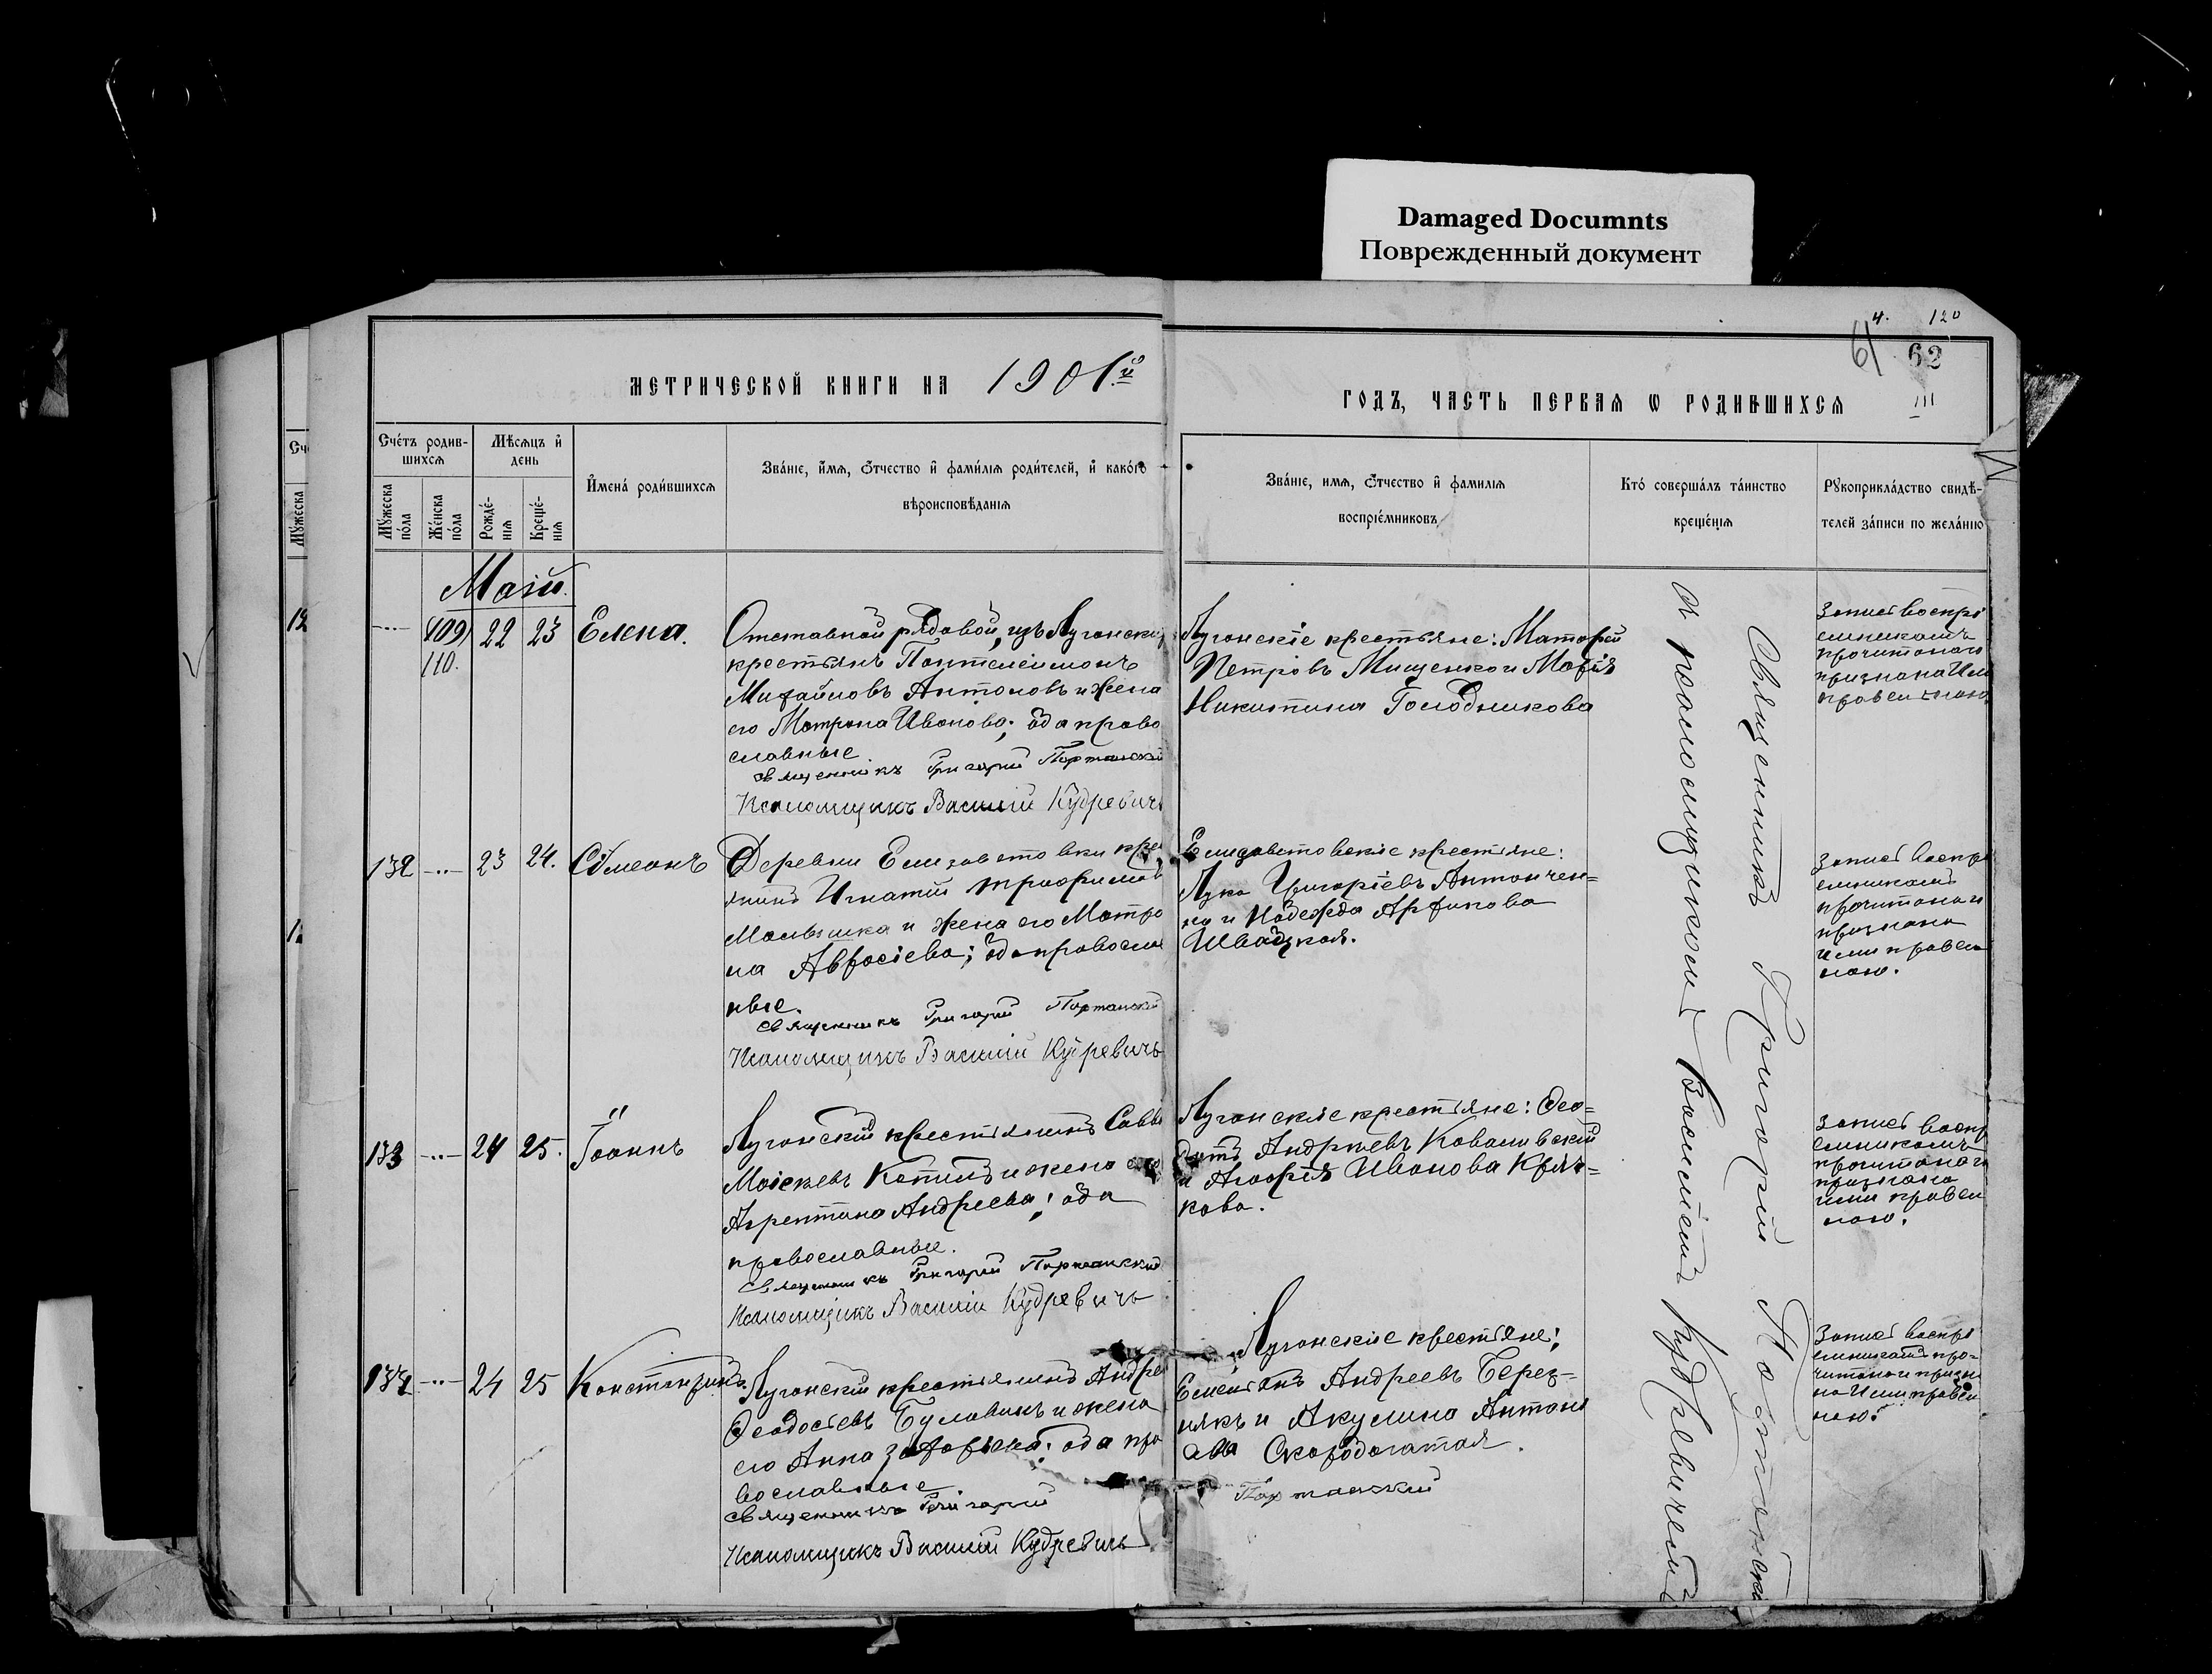 Damaged Documnts
Поврежденный документ
4. 120
61 62
III
МЕТРИЧЕСКОЙ КНИГИ НА 1901.й
ГОДЪ, ЧАСТЬ ПЕРВАЯ Ѡ РОДИВШИХСЯ
Счетъ родив-
шихся
Мѣсяцъ и
день
Мужеска
пола
Женска
пола
Рожде-
нія
Креще-
нія
Имена родившихся
Званіе, имя, отчество и фамилія родителей, и какого
вѣроисповѣданія
Званіе, имя, отчество и фамилія
воспріемниковъ
Кто совершалъ таинство
крещенія
Рукоприкладство свидѣ-
телей записи по желанію
Маій.
109 22 23 Елена.
110.
Отставной рядовой, изъ Лугански
крестьянъ Пантелеимонъ
Михайловъ Антоновъ и жена
его Матрона Иванова; оба право
славные.
Священникъ Григорій Портанскій
Псаломщикъ Василій Кудревичъ
Луганскіе крестьяне:
Петровъ Мищенко и Марія
Никитина Голодникова
Запись воспрі
емникамъ
прочитана и
признана Ими
правильною
132 23 24. Сѵмеонъ
Деревни Елизаветовки кре
янинъ Игнатій Трофимов
Малышка и жена его Матро
на Авросіева; оба правосла
ные.
Священникъ Григорій Портанскій
Псаломщикъ Василій Кудревичъ
Елизаветовскіе крестьяне:
Лука Григоріевъ Антончен=
ко и Надежда Архипова
Швадцкая.
Запись воспрі
емникамъ
прочитана и
признана
ими правил
ною.
133 24 25. Іоаннъ
Луганскій крестьянинъ Савва
Моисеевъ Копилъ и жена его
Агрепина Андреева; оба
православные.
Священникъ Григорій Портанскій
Псаломщикъ Василій Кудревичъ
Луганскіе крестьяне: Ѳео=
дотъ Андреевъ Ковалевскій
и Агафія Иванова Крю=
кова.
Запись воспр
емникамъ
прочитана и
признана
ими правил
ною.
134 24 25 Константинъ.
Луганскій крестьянинъ Андре
Ѳеодосіевъ Булавинъ и жена
его Анна Захаріева; оба пра
вославные
Священникъ Григорій
Портанскій
Псаломщикъ Василій Кудревичъ
Луганскіе крестьяне:
Емельянъ Андреевъ Берез=
някъ и Акулина Антон
ова Скоробогатая.
Запись воспрі
емникамъ про=
читана и призн
на Ими правил
ною.
Священникъ Григорій Портански
съ псаломщикомъ Василіемъ Кудревичемъ